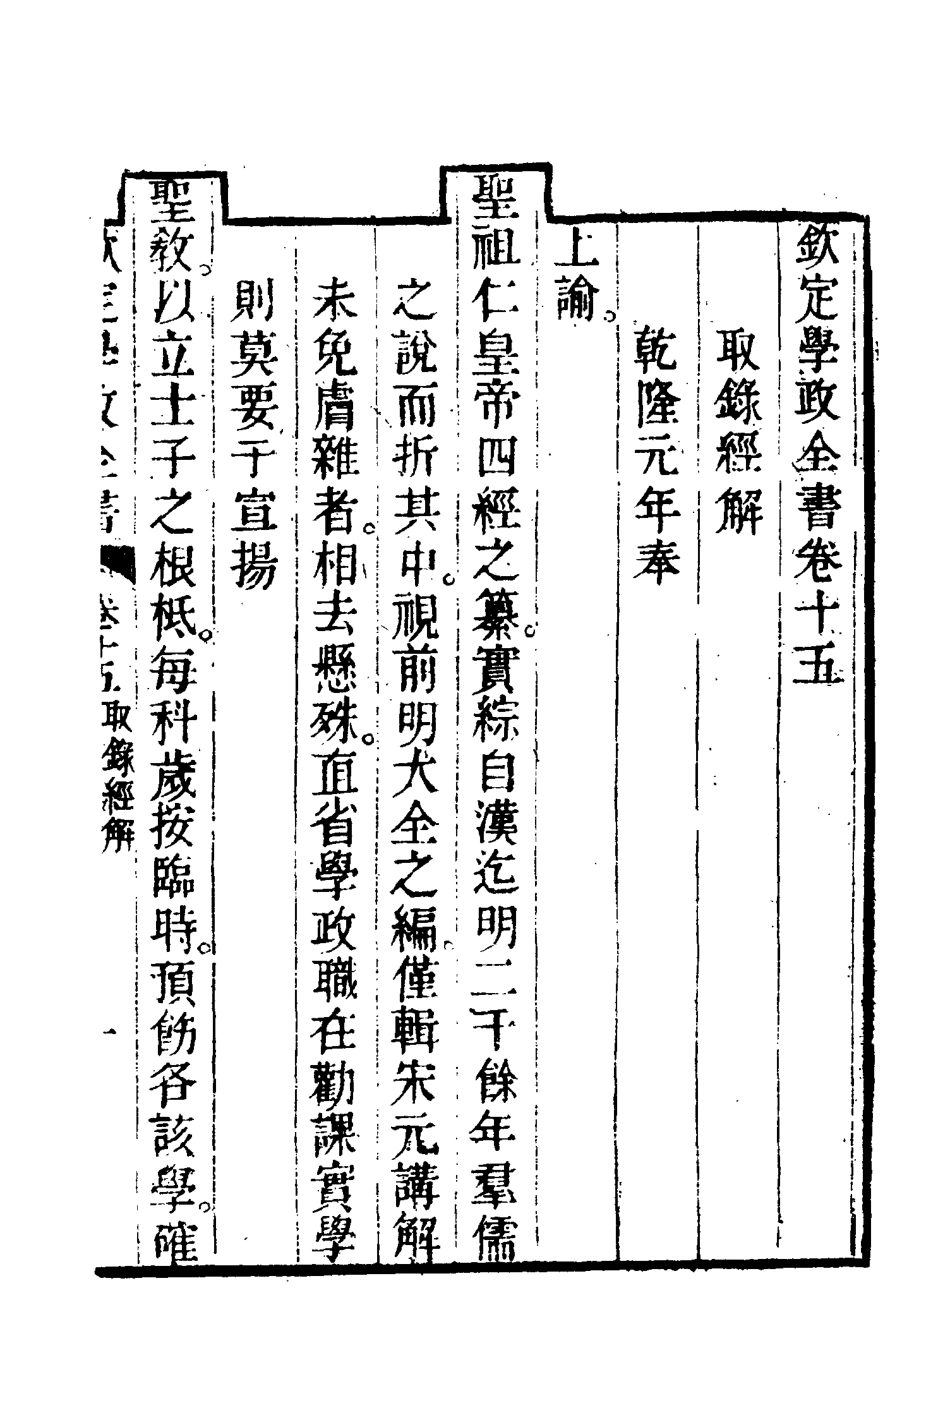 欽定學政全書卷十五
取錄經解
乾隆元年奉
上諭。
聖祖仁皇帝四經之纂。實綜自漢迄明二千餘年羣儒
之說而折其中。視前明大全之編。僅輯宋元講解
未免膚雜者。相去懸殊。直省學政職在勸課實學
則莫要于宣揚
聖教。以立士子之根柢。每科歲按臨時。預飭各該學。確
欽定學政全書 卷十五 取錄經解 一